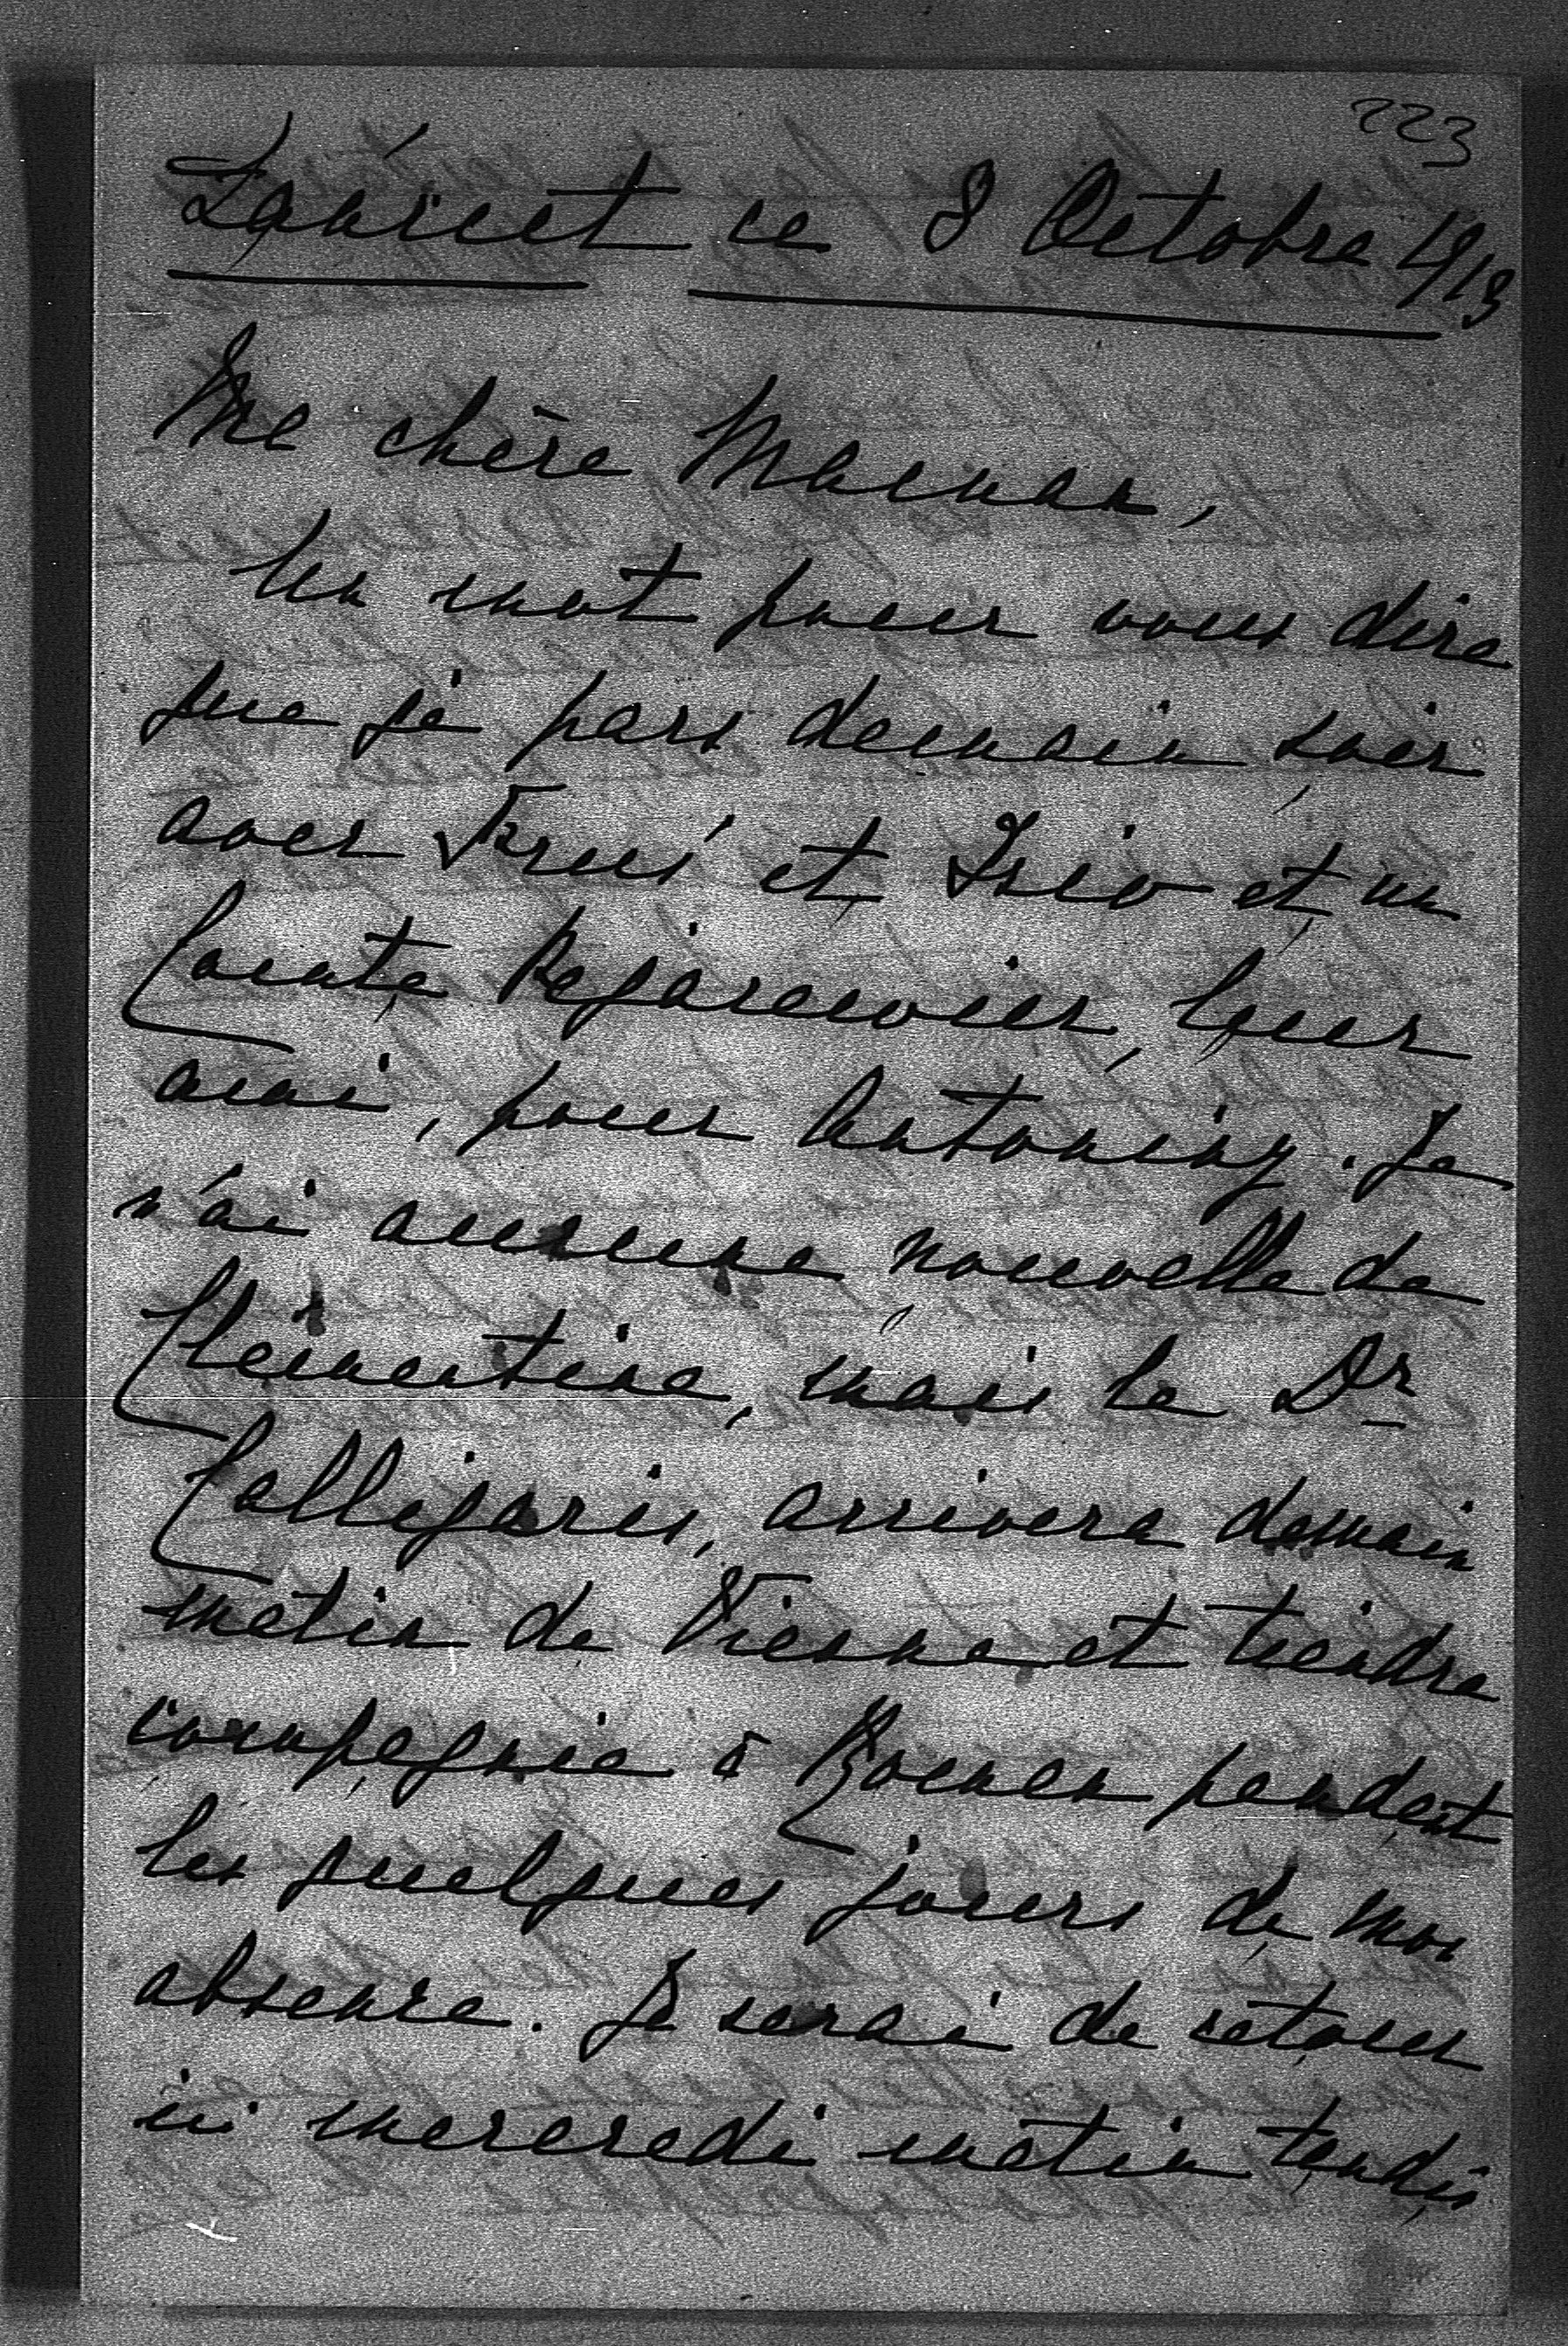 223
ce 8 Octobre 1913
Ma chère Maman,
Un mot pour vous dire
que je pars demain soir
avec et et un
Comte leur
ami, pour Antoniny. Je
n'ai aucune nouvelle de
Clémentine, mais le Dr
Calligaris, arrivera demain
matin de Vienne et tiendra
compagnie à Roman pendant
les quelques jours de mon
absence. Je serai de retour
ici mercredi matin tandis